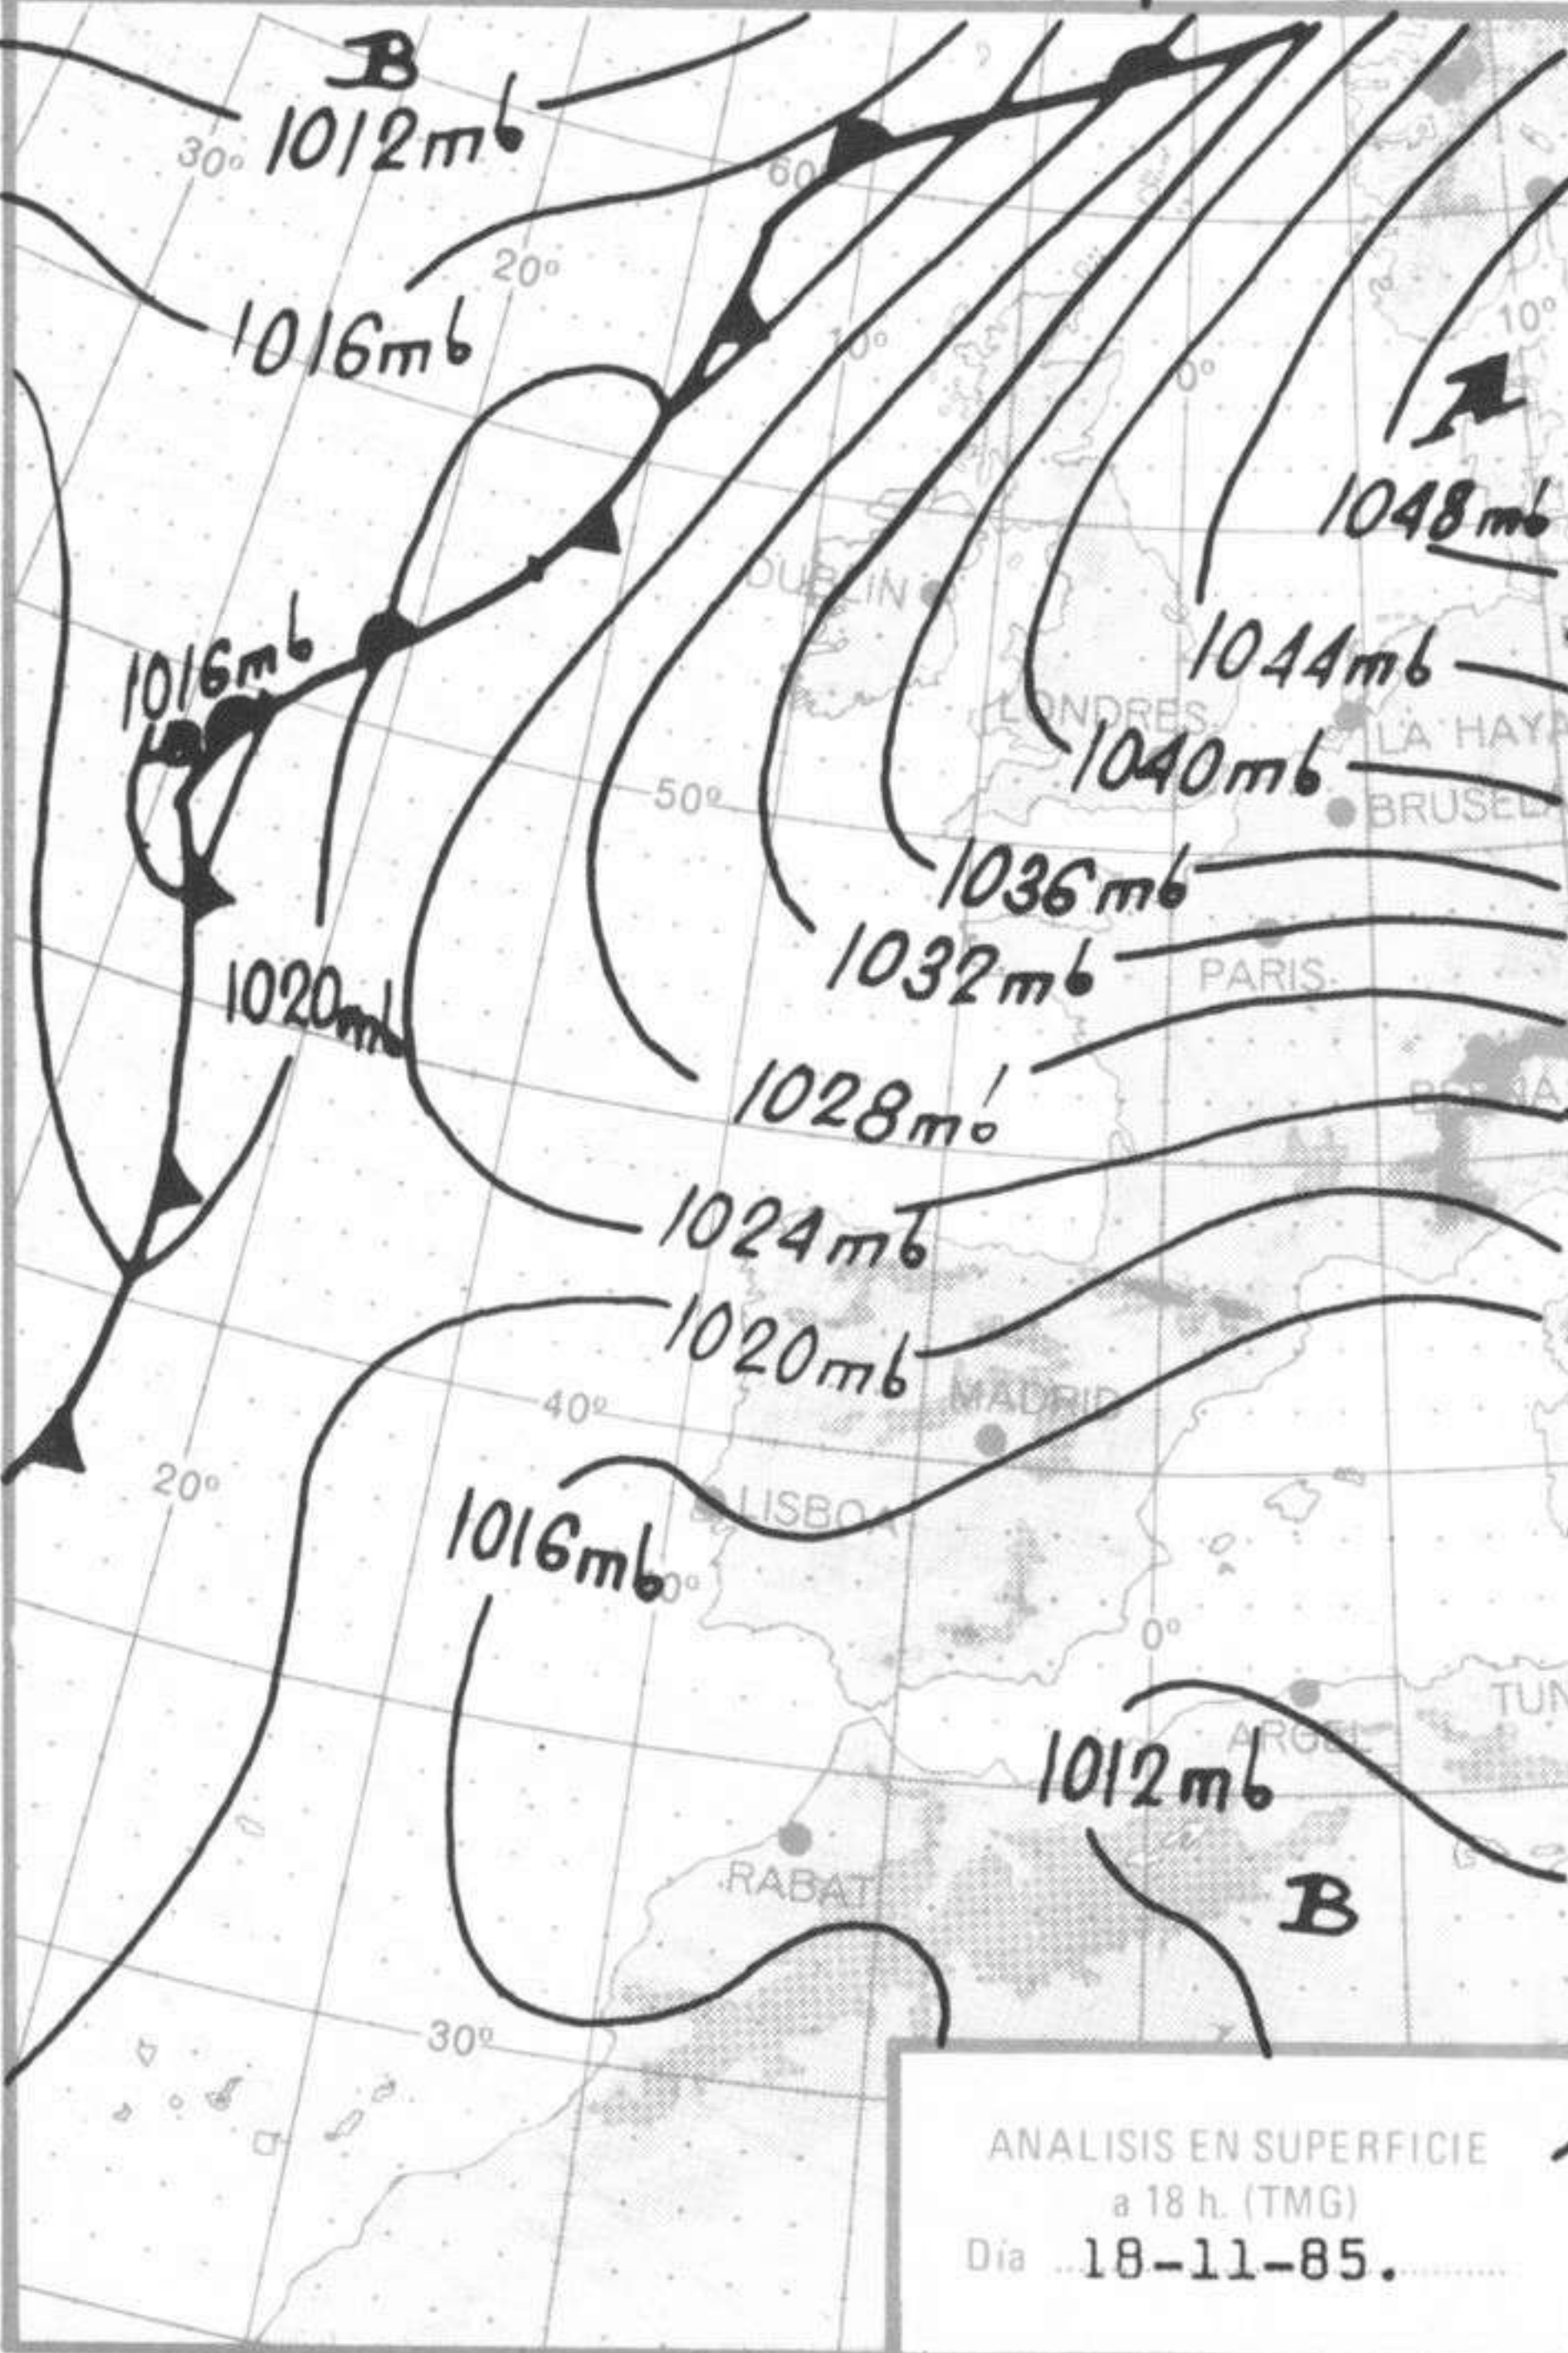 B
1012mb
30º
60º
20º
1016mb
10º
10º
0º
A
1048mb
DUBLIN
1016mb
1044mb
LONDRES
LA HAYA
1040mb
50º
BRUSELA
1036mb
1032mb
PARIS
1020mb
1028mb
BERNA
1024mb
1020mb
MADRID
40º
20º
LISBOA
1016mb
0º
0º
TUN
ARGEL
1012mb
RABAT
B
30º
ANALISIS EN SUPERFICIE
a 18 h. (TMG)
Día 18-11-85.